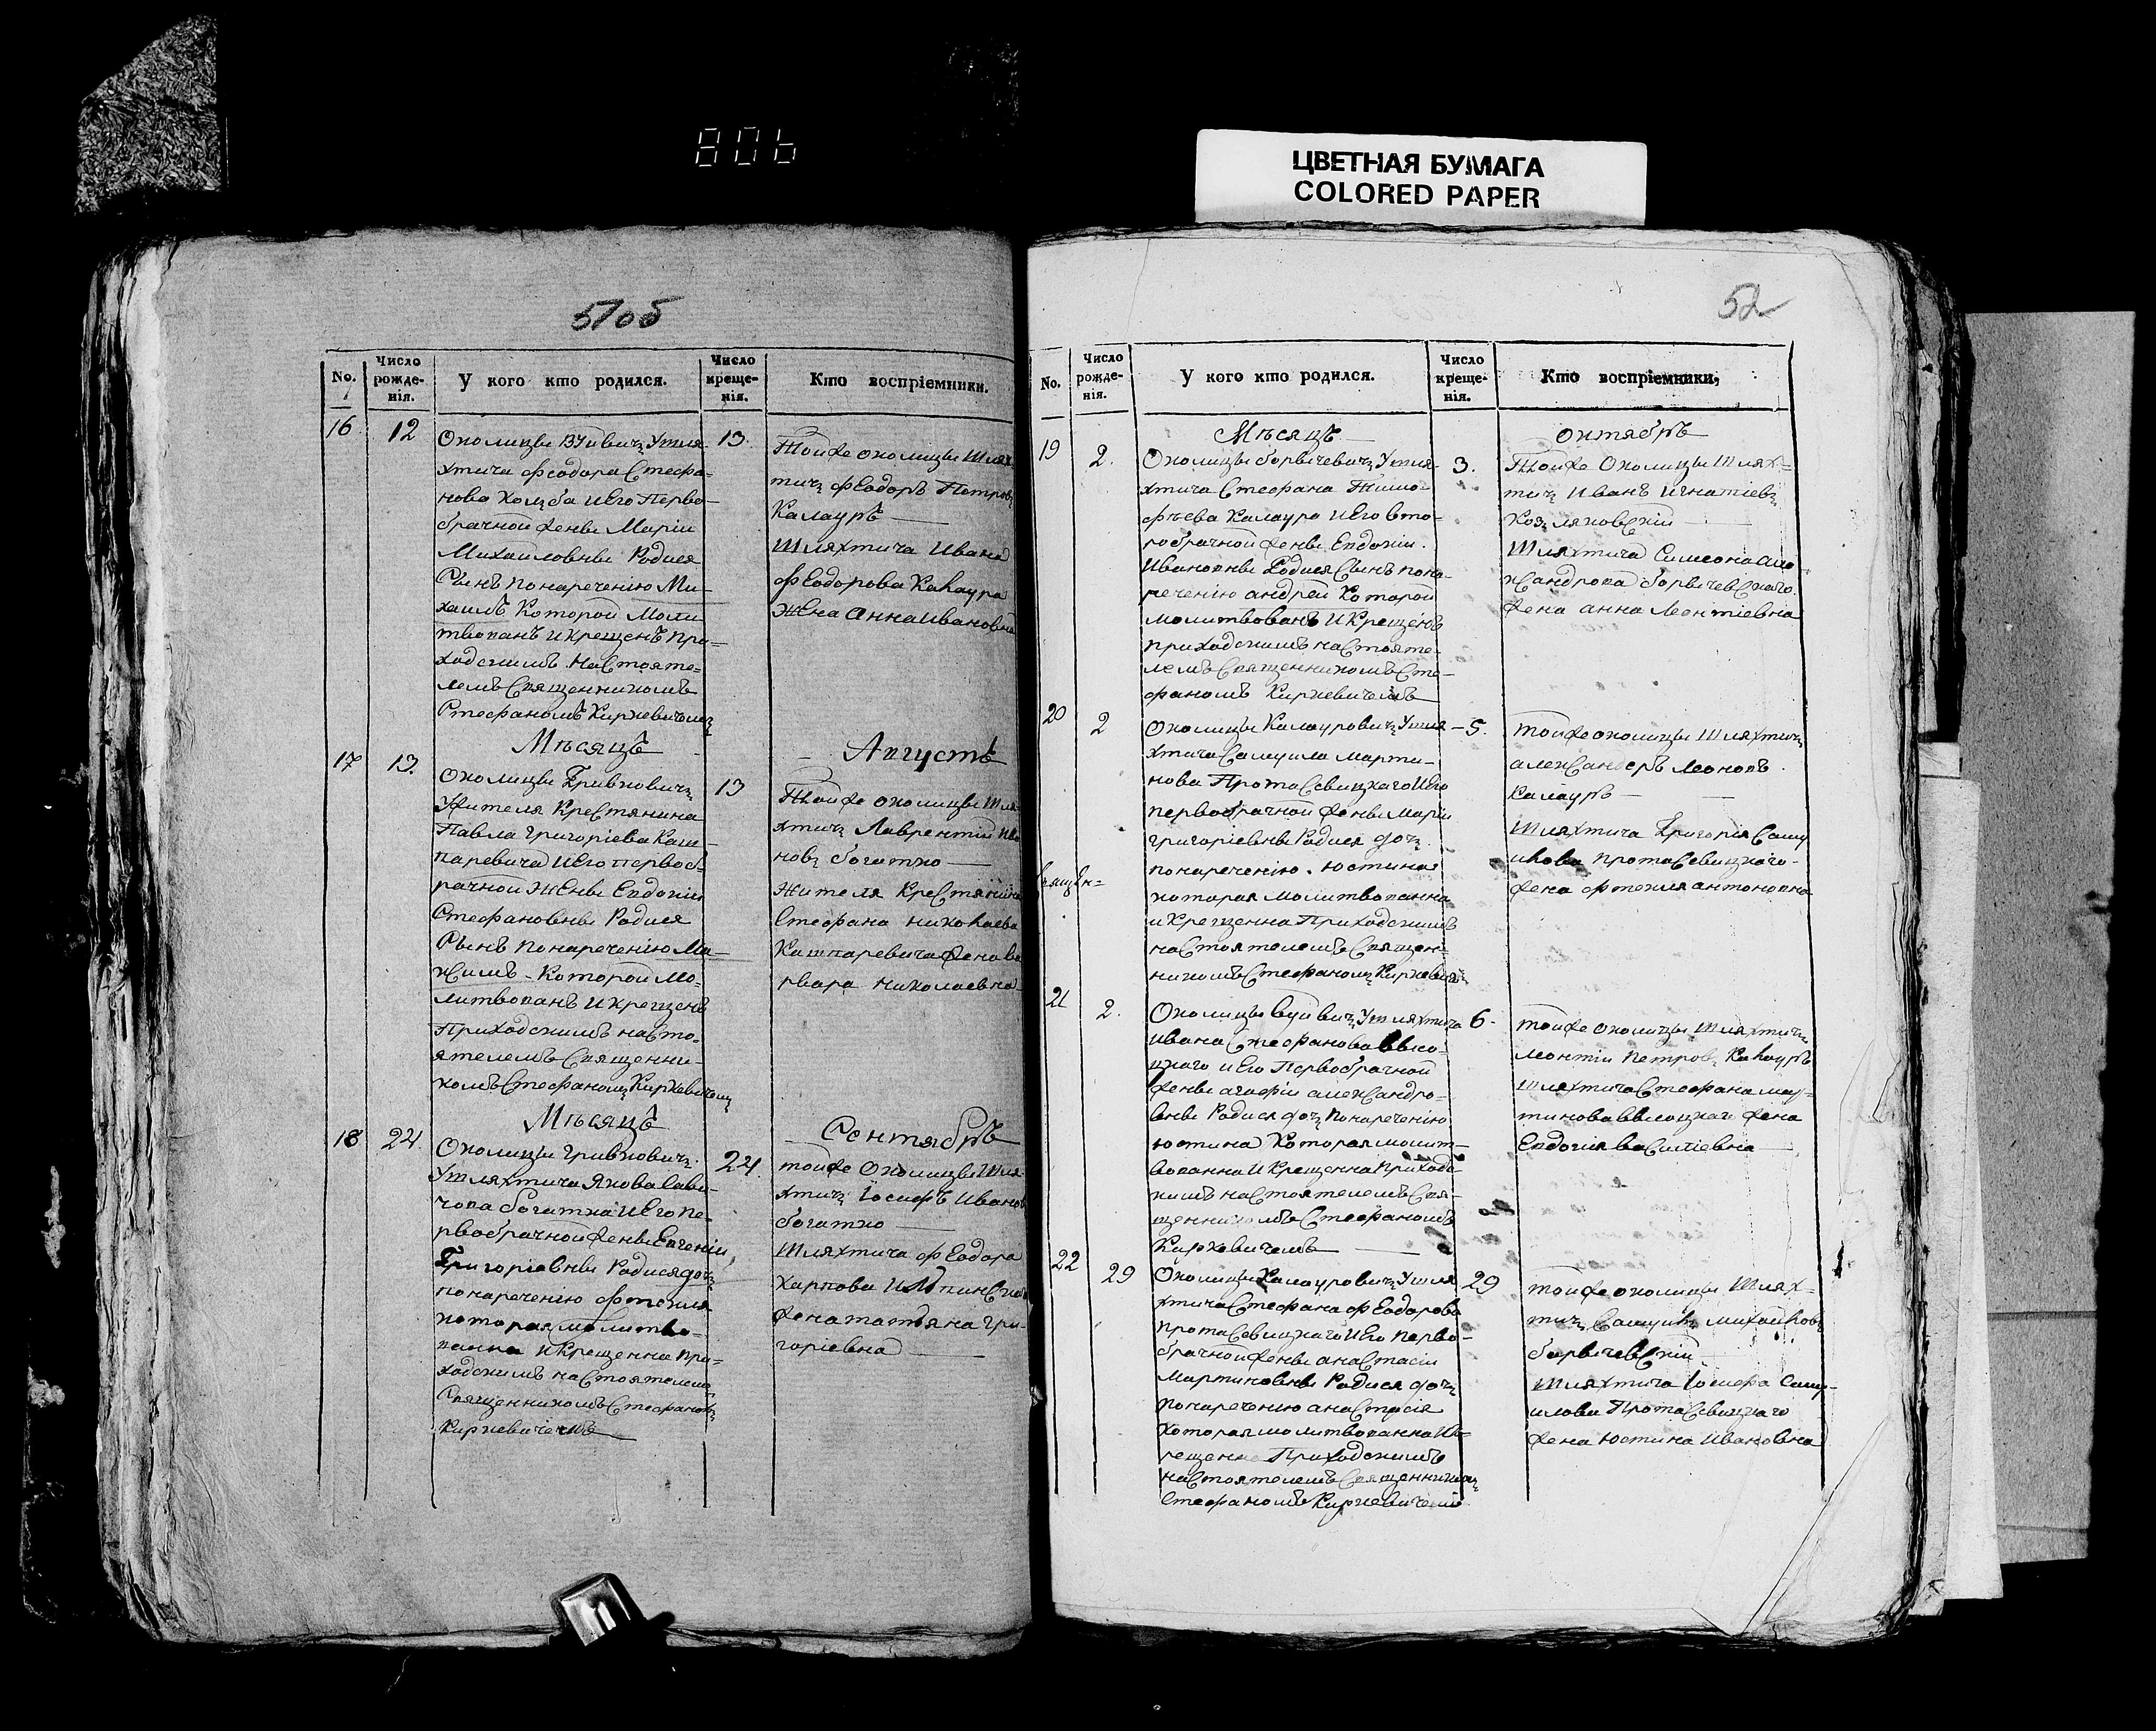 806
ЦВЕТНАЯ БУМАГА
COLORED PAPER
51об
No.
Число рожде-нія.
У кого кто родился.
Число креще-нія.
Кто воспріемники.
16
12
Околицы Вуйвичъ У шля-
хтича Феодора Стефа-
нова Холзба и Его Перво-
брачной жены Маріи
Михайловны Родися
Сынъ по нареченію Ми-
хаилъ Которой Моли-
твованъ и крещенъ При-
ходскимъ Настояте-
лемъ Священникомъ
Стефаномъ Киркевичемъ
13.
Тойже околицы шлях-
тичъ Феодоръ Петровъ
Калауръ
Шляхтича Ивана
Феодорова Калаура
Жена Анна Ивановна
Мѣсяцъ
Августъ
17
13.
Околицы Гривковичъ
Жителя Крестянина
Павла Григоріева Каш-
паревича и Его первоб-
рачной Жены Евдокіи
Стефановны Родися
Сынъ по нареченію Ма-
ксимъ Которой Мо-
литвованъ и крещенъ
Приходскимъ насто-
ятелемъ Священни-
комъ Стефаномъ Киркевичемъ
13
Тойже околицы шля-
хтичъ Лаврентій Ива-
новъ богатко
Жителя Крестянина
Стефана николаева
Кашпаревича жена ва
рвара николаевна
Мѣсяцъ
Сентябрь
18
24.
Околицы Гривковичъ
У шляхтича Якова Сави-
чова богатка и Его пе-
рвобрачной жены Евгеніи
Григоріевны Родися дочъ
по нареченію Фтекля
которая молитво-
ванна и Крещенна при-
ходскимъ настоятелемъ
Священникомъ Стефаномъ
Киркевичемъ
24.
тойже Околицы шля-
хтичъ Іосифъ Ивановъ
богатко
Шляхтича Феодора
Карпова
жена татяна гри-
горіевна
52
No.
Число рожде-нія.
У кого кто родился.
Число креще-нія.
Кто воспріемники,
Мѣсяцъ
октябрь
19
2.
Околицы борвичевичъ У шля-
хтича Стефана Тимо-
фѣева Калаура и Его вто-
робрачной жены Евдокіи
Ивановны Родися Сынъ пона-
реченію андрей Которой
молитвованъ и Крещенъ
приходскимъ настояте-
лемъ Священникомъ Сте-
фаномъ Киркевичемъ
3.
Тойже Околицы шлях-
тичъ Иванъ Игнатіевъ
Козляковскій
Шляхтича Симеона але
ксандрова борвичевскаго
жена анна Леонтіевна
20
2
Околицы Калауровичъ У шля-
хтича Самуила Марти-
нова Протасевицкаго и Его
первобрачной жены Маріи
григоріевны Родися дочъ
по нареченію юстина
которая молитвованна
и Крещенна Приходскимъ
настоятелемъ Священ-
никомъ Стефаномъ Киркевич
5.
тойже околицы шляхтичъ
александеръ Леоновъ
Калауръ
Шляхтича Григорія Саму
илова протасевицкаго
жена Фтекля антоновна
21
2.
Околицы вуйвичъ У шляхтича
ивана Стефанова
и Его Первобрачной
жены агафіи александро-
вны Родися дочъ по нареченію
юстина Которая молит-
вованна и Крещенна Приходс-
кимъ настоятелемъ Свя-
щенникомъ Стефаномъ
Киркевичемъ
6.
тойже околицы шляхтичъ
Леонтій Петровъ Калауръ
шляхтича Стефана мар-
тинова жена
Евдокія василіевна
22
29
Околицы Калауровичъ У шля
хтича Стефана Феодорова
протасевицкаго и Его перво-
брачной жены анастасіи
Мартиновны Родися дочъ
по нареченію анастасія
Которая молитвованна и К-
рещенна Приходскимъ
настоятелемъ Священникомъ
Стефаномъ Киркевичемъ
29
тойже околицы шлях-
тичъ Самуилъ михайловъ
борвичевскій
шляхтича Іосифа Саму-
илова Протасевицкаго
жена юстина Ивановна